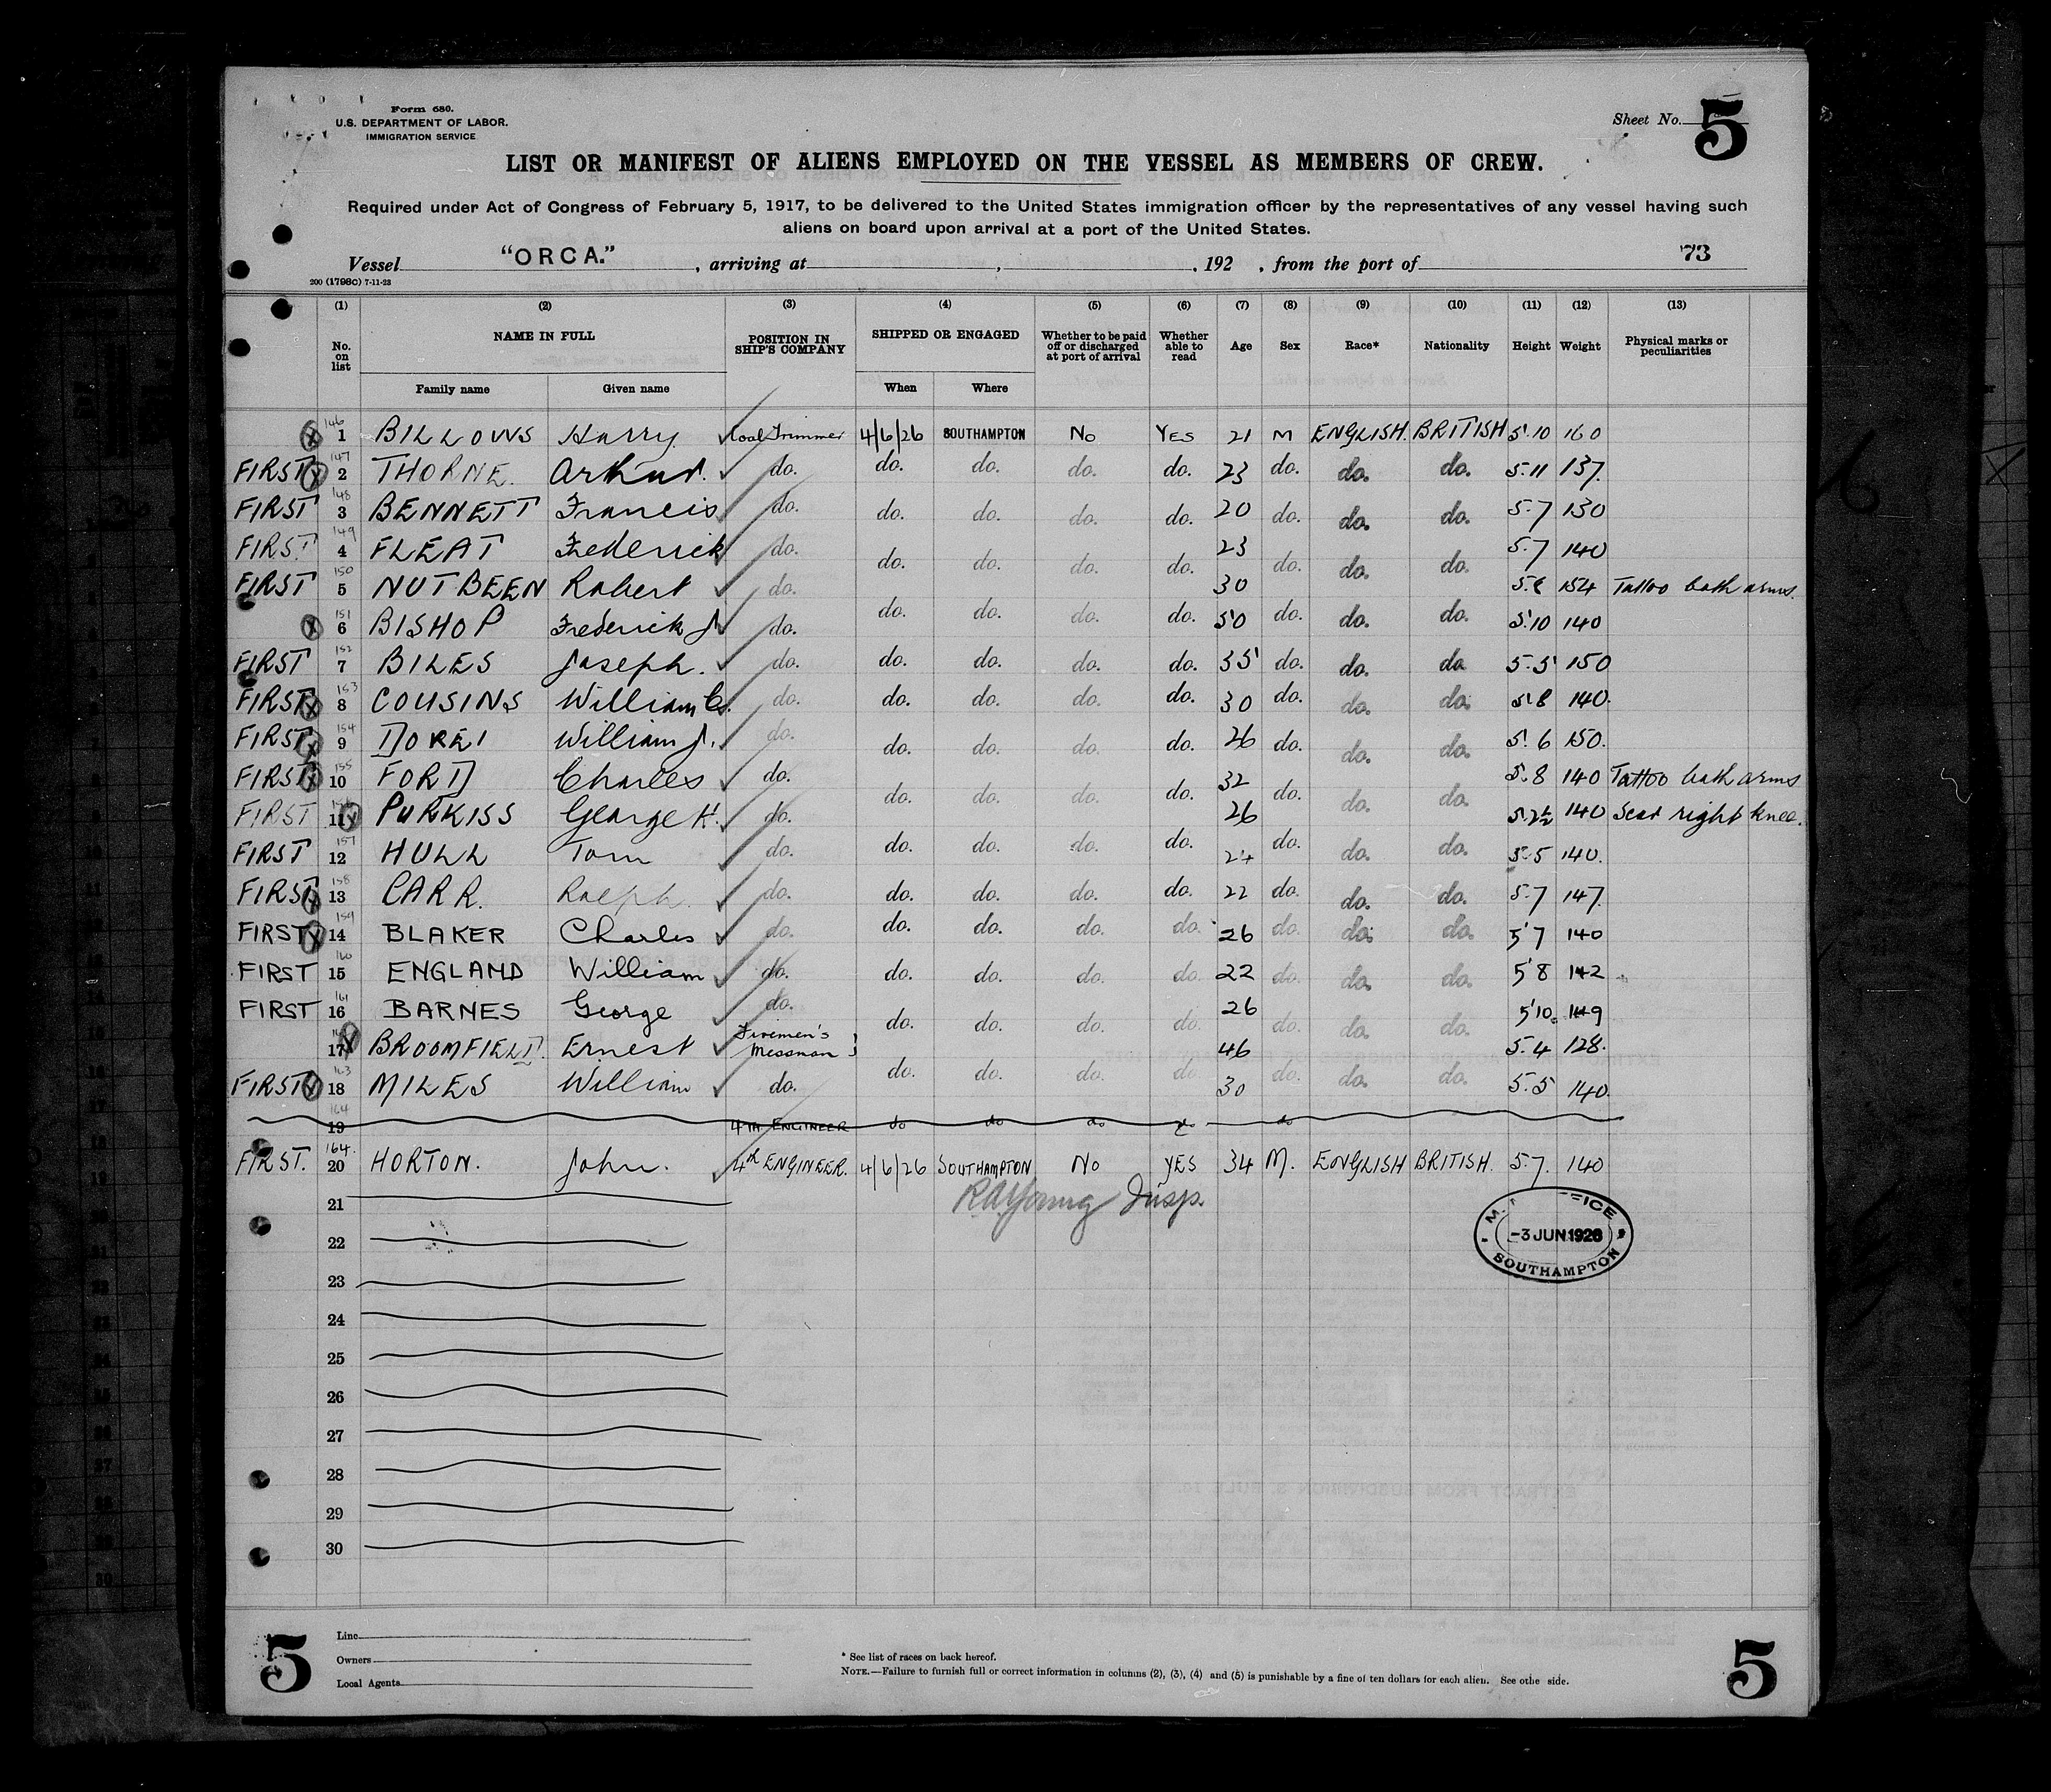 Form 680.
U.S. DEPARTMENT OF LABOR.
IMMIGRATION SERVICE
Sheet No. 5
LIST OR MANIFEST OF ALIENS EMPLOYED ON THE VESSEL AS MEMBERS OF CREW.
Required under Act of Congress of February 5, 1917, to be delivered to the United States immigration officer by the representatives of any vessel having such
aliens on board upon arrival at a port of the United States.
Vessel "ORCA." , arriving at , , 192 , from the port of 73
200 (1798C) 7-11-23
(1) (2) (3) (4) (5) (6) (7) (8) (9) (10) (11) (12) (13)
No. on list NAME IN FULL POSITION IN SHIP'S COMPANY SHIPPED OR ENGAGED Whether to be paid off or discharged at port of arrival Whether able to read Age Sex Race* Nationality Height Weight Physical marks or peculiarities
Family name Given name When Where
X 146 1 BILLOWS Harry Coal Trimmer 4/6/26 SOUTHAMPTON No YES 21 M ENGLISH. BRITISH 5'10 160
FIRST X 147 2 THORNE. Arthur. do. do. do. do. do. 23 do. do. do. 5.11 137.
FIRST 148 3 BENNETT Francis do. do. do. do. do. 20 do. do. do. 5.7 130
FIRST 149 4 FLEAT Frederick do. do. do. do. do. 23 do. do. do. 5.7 140
FIRST 150 5 NUTBEEN Robert do. 30 154 Tattoo both arms.
X 151 6 BISHOP Frederick J do. do. do. do. do. 50 do. do. do. 5'10 140
FIRST 152 7 BILES Joseph. do. do. do. do. do. 35 do. do. do 5.5 150
FIRST X 153 8 COUSINS William C. do. do. do. do. do. 30 do. do. do. 5'8 140.
FIRST X 154 9 DOREY William J. do. do. do. do. do. 26 do. do. do. 5.6 150.
FIRST X 155 10 FORD Charles do. do. do. do. do. 32 do. do. do. 5.8 140 Tattoo both arms
FIRST X 156 11 PURKISS George H. do. 26 5.2½ 140 Scar right knee.
FIRST 157 12 HULL Tom do. do. do. do. do. 24 do. do. do. 5.5 140.
FIRST X 158 13 CARR. Ralph. do. do. do. do. do. 22 do. do. do. 5.7 147.
FIRST X 159 14 BLAKER Charles do. do. do. do. do. 26 do. do. do. 5'7 140
FIRST 160 15 ENGLAND William do. do. do. do. do. 22 do. do. do. 5'8 142
FIRST 161 16 BARNES George do. do. do. do. do. 26 do. do. do. 5'10. 149
X 17 BROOMFIELD. Ernest Firemen's Messman 46 5.4 128.
FIRST X 163 18 MILES William do. do. do. do. do. 30 do. do. do. 5.5 140.
164 19 4TH ENGINEER do do do do
FIRST. 164. 20 HORTON. John. 4th ENGINEER. 4/6/26 SOUTHAMPTON No YES 34 M. ENGLISH BRITISH. 5.7. 140
21
RA Young Insp.
22
M. FICE
-3 JUN 1926
SOUTHAMPTON
23
24
25
26
27
28
29
30
5
Line
Owners
Local Agents
* See list of races on back hereof.
NOTE.—Failure to furnish full or correct information in columns (2), (3), (4) and (5) is punishable by a fine of ten dollars for each alien. See othe side.
5